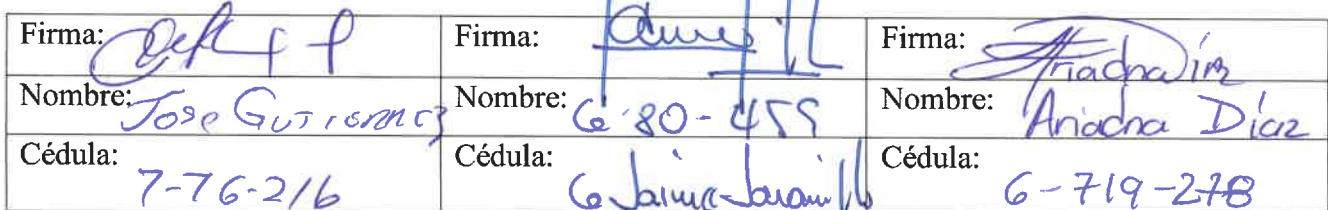 Firma: Firma: Firma: Ariadna Díaz
Nombre: Jose Gutierrez Nombre: 6-80-459 Nombre: Ariadna Díaz
Cédula: 7-76-216 Cédula: Jaime Jaramillo Cédula: 6-719-278